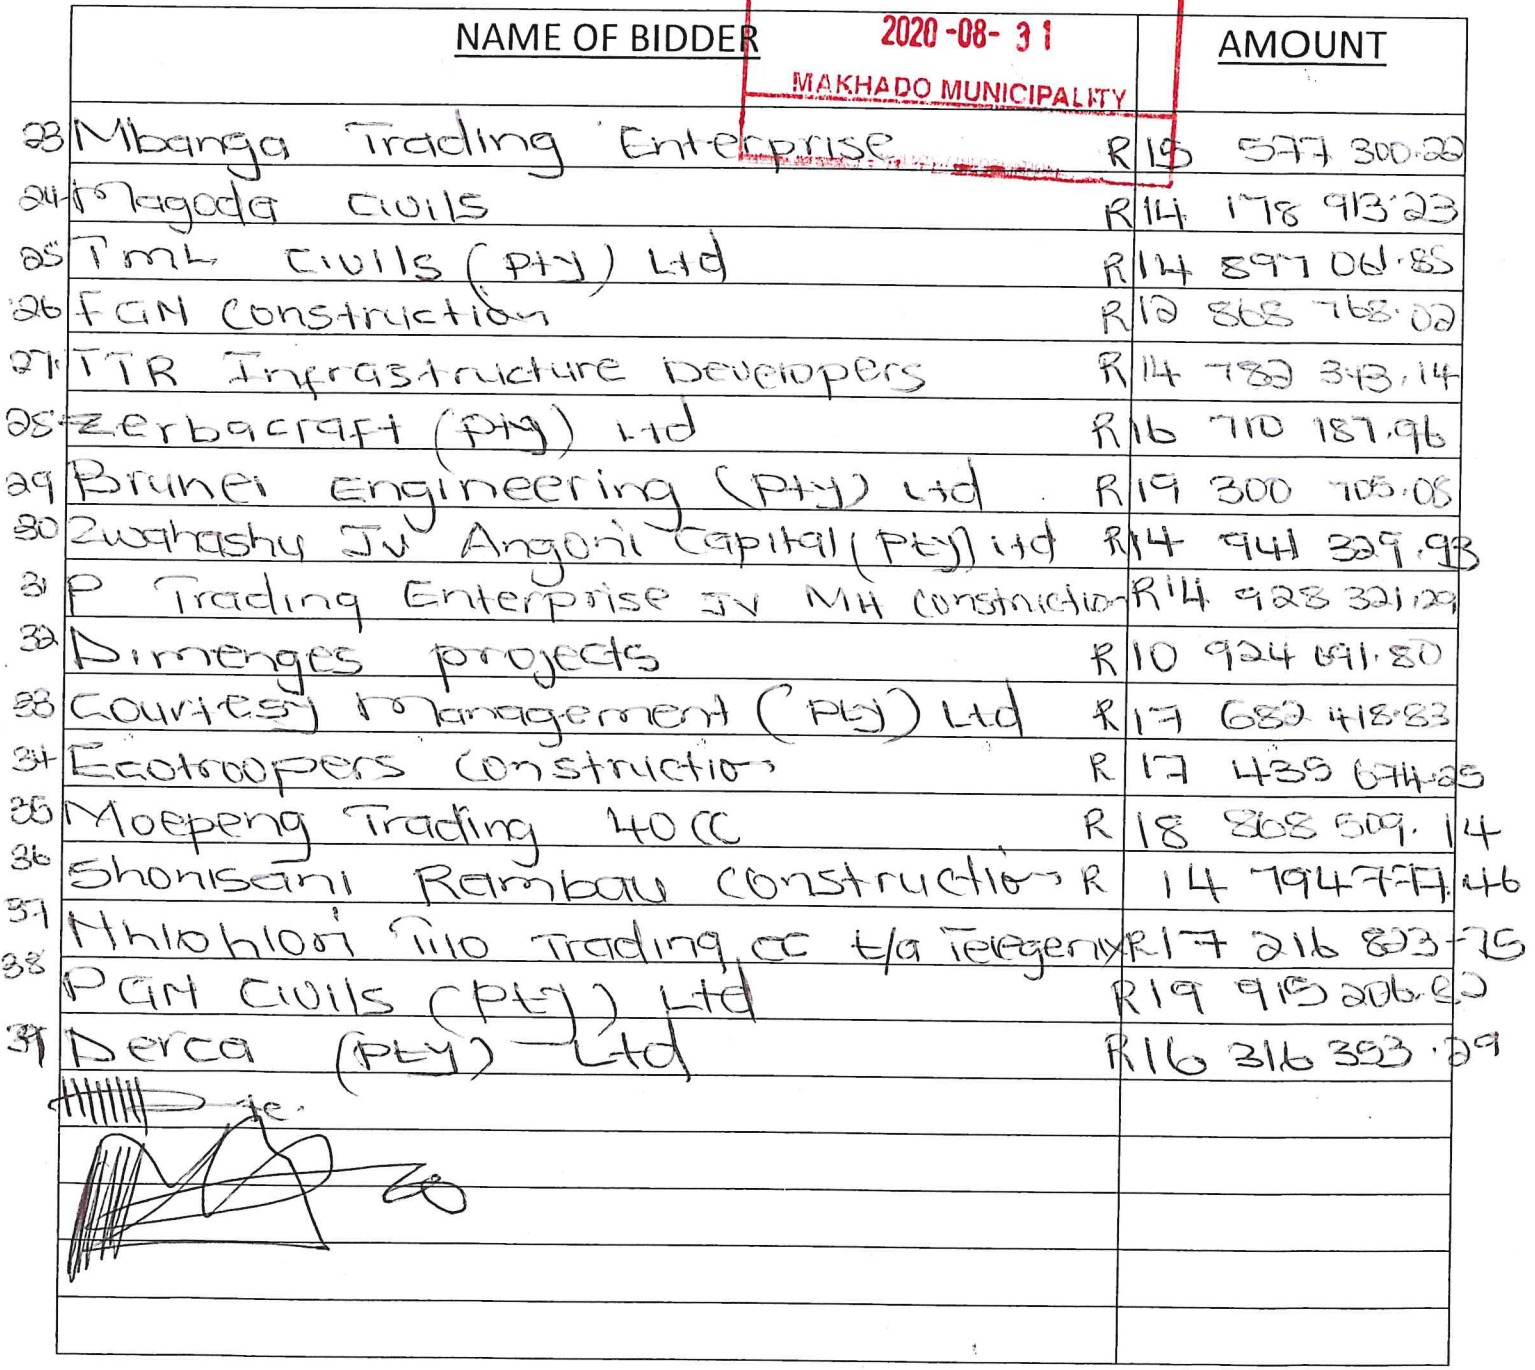 NAME OF BIDDER 2020-08-31 AMOUNT
MAKHADO MUNICIPALITY
23 Mbanga Trading Enterprise R 15 577 300.22
24 Magoda Civils R 14 178 913.23
25 TML Civils (Pty) Ltd R 14 897 061.85
26 FGM Construction R 12 868 768.02
27. TTR Infrastructure Developers R 14 782 343.14
28 Zerbacraft (Pty) Ltd R 16 710 187.96
29 Brunei Engineering (Pty) Ltd R 19 300 705.08
30 Zwahashu JV Angoni Capital (Pty) Ltd R14 941 329.93
31 P Trading Enterprise JV MH Construction R14 928 321.29
32 Dimenges projects R 10 924 691.80
33 Courtesy Management (Pty) Ltd R 17 682 418.83
34 Ecotroopers Construction R 17 435 674.25
35 Moepeng Trading 40 CC R 18 868 509.14
36 Shonisani Rambau Construction R 14 794 777.46
37 Nhlohlori Trading CC t/a R17 216 823-75
38 PGN Civils (Pty) Ltd R19 915 206.82
39 Derca (Pty) Ltd R16 316 353.29